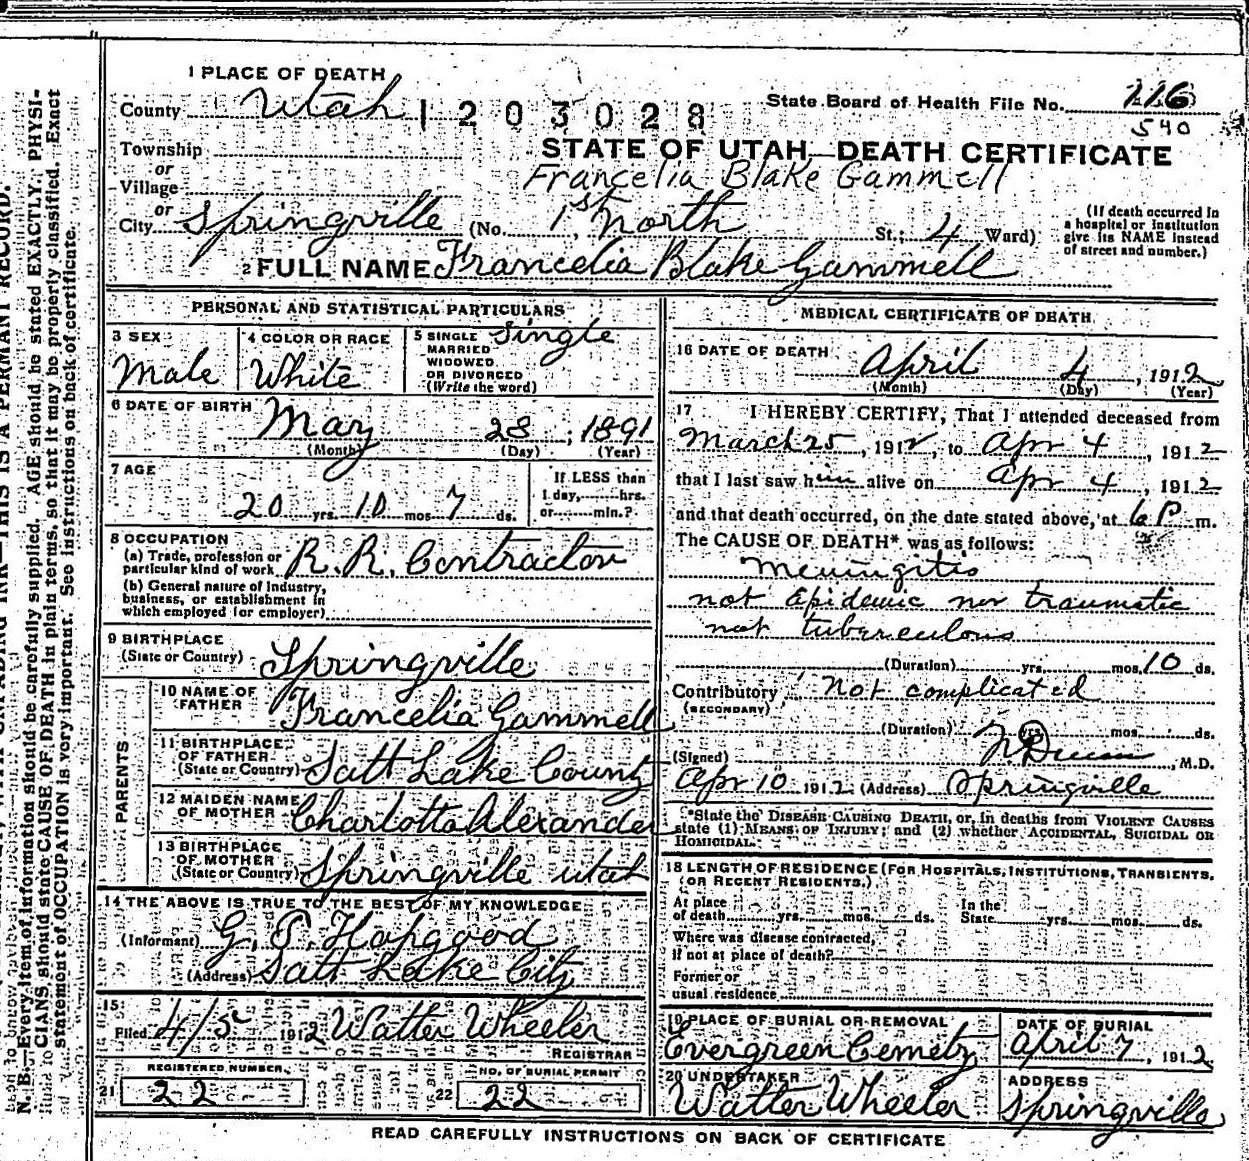 1 PLACE OF DEATH
County Utah 1203028
State Board of Health File No. 116
540
Township
STATE OF UTAH DEATH CERTIFICATE
or
Village
Francelia Blake Gammell
or
City Springville (No. 1st North St.; 4 Ward)
(If death occurred in
a hospital or institution
give its NAME instead
of street and number.)
2 FULL NAME Francelia Blake Gammell
PERSONAL AND STATISTICAL PARTICULARS
3 SEX Male
4 COLOR OR RACE White
5 SINGLE Single
MARRIED
WIDOWED
OR DIVORCED
(Write the word)
6 DATE OF BIRTH May 28, 1891
(Month) (Day) (Year)
7 AGE
20 yrs. 10 mos. 7 ds.
If LESS than
1 day, hrs.
or min.?
8 OCCUPATION
(a) Trade, profession or
particular kind of work R. R. Contractor
(b) General nature of industry,
business, or establishment in
which employed (or employer)
9 BIRTHPLACE
(State or Country) Springville
PARENTS
10 NAME OF
FATHER Francelia Gammell
11 BIRTHPLACE
OF FATHER
(State or Country) Salt Lake County
12 MAIDEN NAME
OF MOTHER Charlotta Alexander
13 BIRTHPLACE
OF MOTHER
(State or Country) Springville Utah
14 THE ABOVE IS TRUE TO THE BEST OF MY KNOWLEDGE
(Informant) G. S. Hapgood
(Address) Salt Lake City
15
Filed 4/5 1912 Walter Wheeler
REGISTRAR
REGISTERED NUMBER
21 22
NO. OF BURIAL PERMIT
22 22
MEDICAL CERTIFICATE OF DEATH
16 DATE OF DEATH
April 4, 1912
(Month) (Day) (Year)
17 I HEREBY CERTIFY, That I attended deceased from
March 25, 1912, to Apr 4, 1912
that I last saw him alive on Apr 4, 1912
and that death occurred, on the date stated above, at 6 P m.
The CAUSE OF DEATH* was as follows:
Meningitis
not Epidemic nor traumatic
not tuberculous
(Duration) yrs. mos. 10 ds.
Contributory Not complicated
(SECONDARY)
(Duration) yrs. mos. ds.
(Signed) M.D.
Apr 10 1912 (Address) Springville
*State the DISEASE CAUSING DEATH, or, in deaths from VIOLENT CAUSES
state (1) MEANS OF INJURY; and (2) whether ACCIDENTAL, SUICIDAL OR
HOMICIDAL.
18 LENGTH OF RESIDENCE (FOR HOSPITALS, INSTITUTIONS, TRANSIENTS,
OR RECENT RESIDENTS.)
At place
of death yrs. mos. ds.
In the
State yrs. mos. ds.
Where was disease contracted,
if not at place of death?
Former or
usual residence
19 PLACE OF BURIAL OR REMOVAL
Evergreen Cemety
DATE OF BURIAL
April 7, 1912
20 UNDERTAKER
Walter Wheeler
ADDRESS
Springville
READ CAREFULLY INSTRUCTIONS ON BACK OF CERTIFICATE
THIS IS A PERMANT RECORD.
N. B.—Every item of information should be carefully supplied. AGE should be stated EXACTLY. PHYSI-
CIANS should state CAUSE OF DEATH in plain terms, so that it may be properly classified. Exact
statement of OCCUPATION is very important. See instructions on back of certificate.